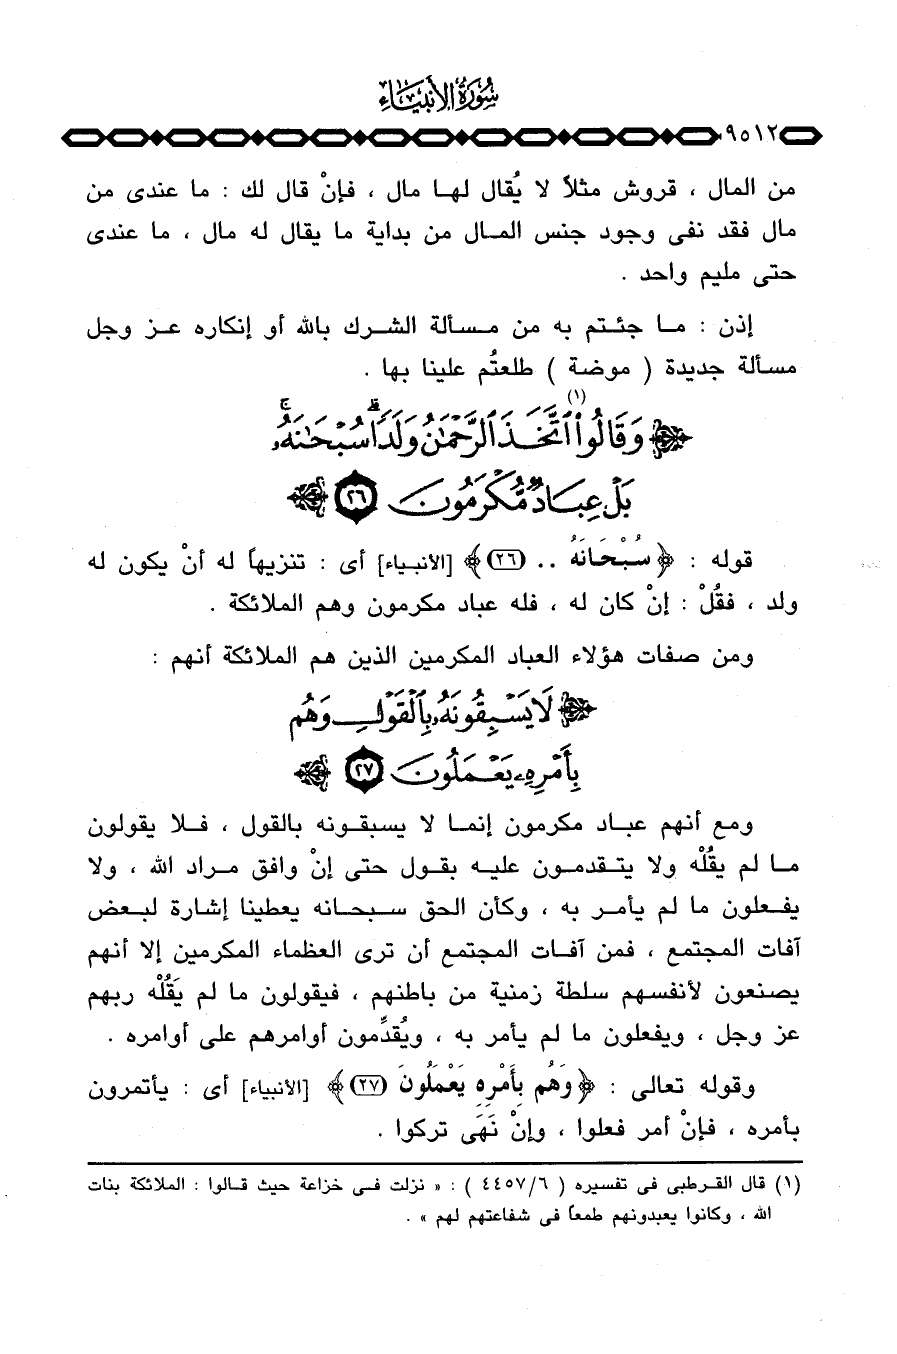 سُورَةُ الأَنبيَاءِ
٩٥١٢
من المال ، قروش مثلاً لا يُقال لهـا مال ، فإنْ قال لك : ما عندى من
مال فقد نفى وجود جنس المـال من بداية ما يقال له مال ، ما عندى
حتى مليم واحد .
إذن : مـا جئـتم به من مـسألة الشـرك بالله أو إنكاره عـز وجل
مسـألة جديدة ( موضة ) طلعتُم علينا بها .
﴿ وَقَالُوا۟ ٱتَّخَذَ ٱلرَّحْمَٰنُ وَلَدًا ۗ سُبْحَٰنَهُۥ ۚ (١)
بَلْ عِبَادٌ مُّكْرَمُونَ ٢٦ ﴾
قوله : ﴿ سُبْحَانَهُ .. (٢٦) ﴾ [الأنبياء] أى : تنزيهاً له أنْ يكون له
ولد ، فقُلْ : إنْ كان له ، فله عباد مكرمون وهم الملائكة .
ومن صفات هؤلاء العباد المكرمين الذين هم الملائكة أنهم :
﴿ لَا يَسْبِقُونَهُۥ بِٱلْقَوْلِ وَهُم
بِأَمْرِهِۦ يَعْمَلُونَ ٢٧ ﴾
ومع أنهم عبـاد مكرمون إنمـا لا يسبقـونه بالقول ، فـلا يقولون
مـا لم يقُلْه ولا يتـقدمـون عليـه بقـول حتى إنْ وافق مـراد الله ، ولا
يفـعلون ما لم يأمـر به ، وكأن الحق سـبحـانه يعطينا إشارة لـبعض
آفات المـجتمع ، فمن آفـات المجتمع أن ترى العظماء المكرمين إلا أنهم
يصنعون لأنفسـهم سلطة زمنية من باطنهم ، فيقولون ما لم يَقُلْه ربهم
عز وجل ، ويفعلون ما لم يأمر به ، ويُقدِّمون أوامرهم على أوامره .
وقوله تعالى : ﴿ وَهُم بِأَمْرِهِ يَعْمَلُونَ (٢٧) ﴾ [الأنبياء] أى : يأتمرون
بأمره ، فإنْ أمر فعلوا ، وإنْ نَهَى تركوا .
(١) قال القـرطبى فى تفسيره ( ٦/ ٤٤٥٧ ) : « نزلت فـى خزاعة حيث قـالوا : الملائكة بنات
الله ، وكانوا يعبدونهم طمعاً فى شفاعتهم لهم » .